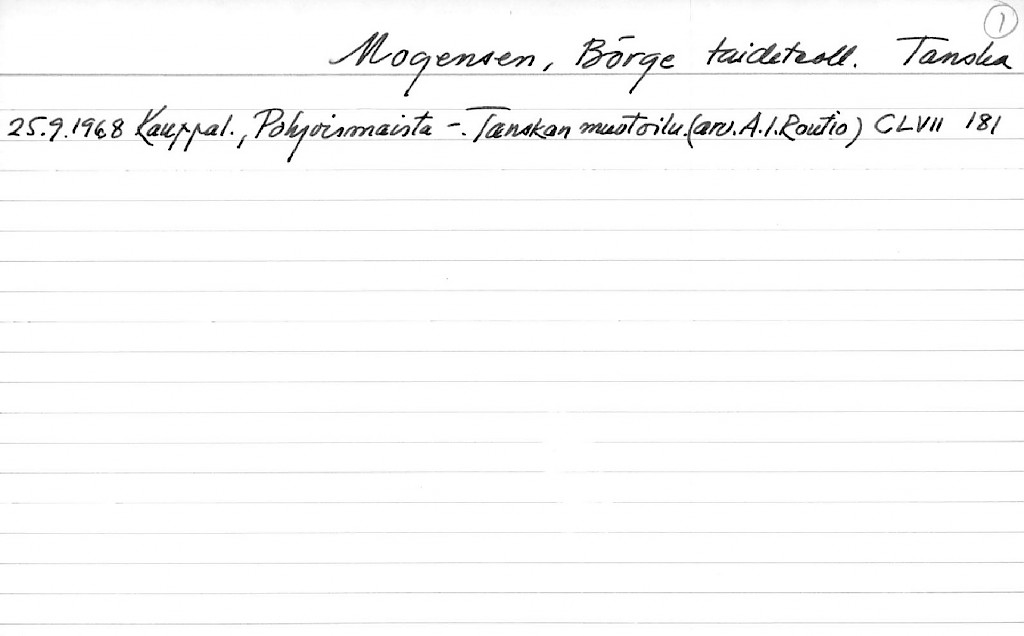 1
Mogensen, Börge taideteoll. Tanska
25.9.1968 Kauppal., Pohjoismaista -. Tanskan muotoilu. (arv. A.I. Routio) CLVII 181